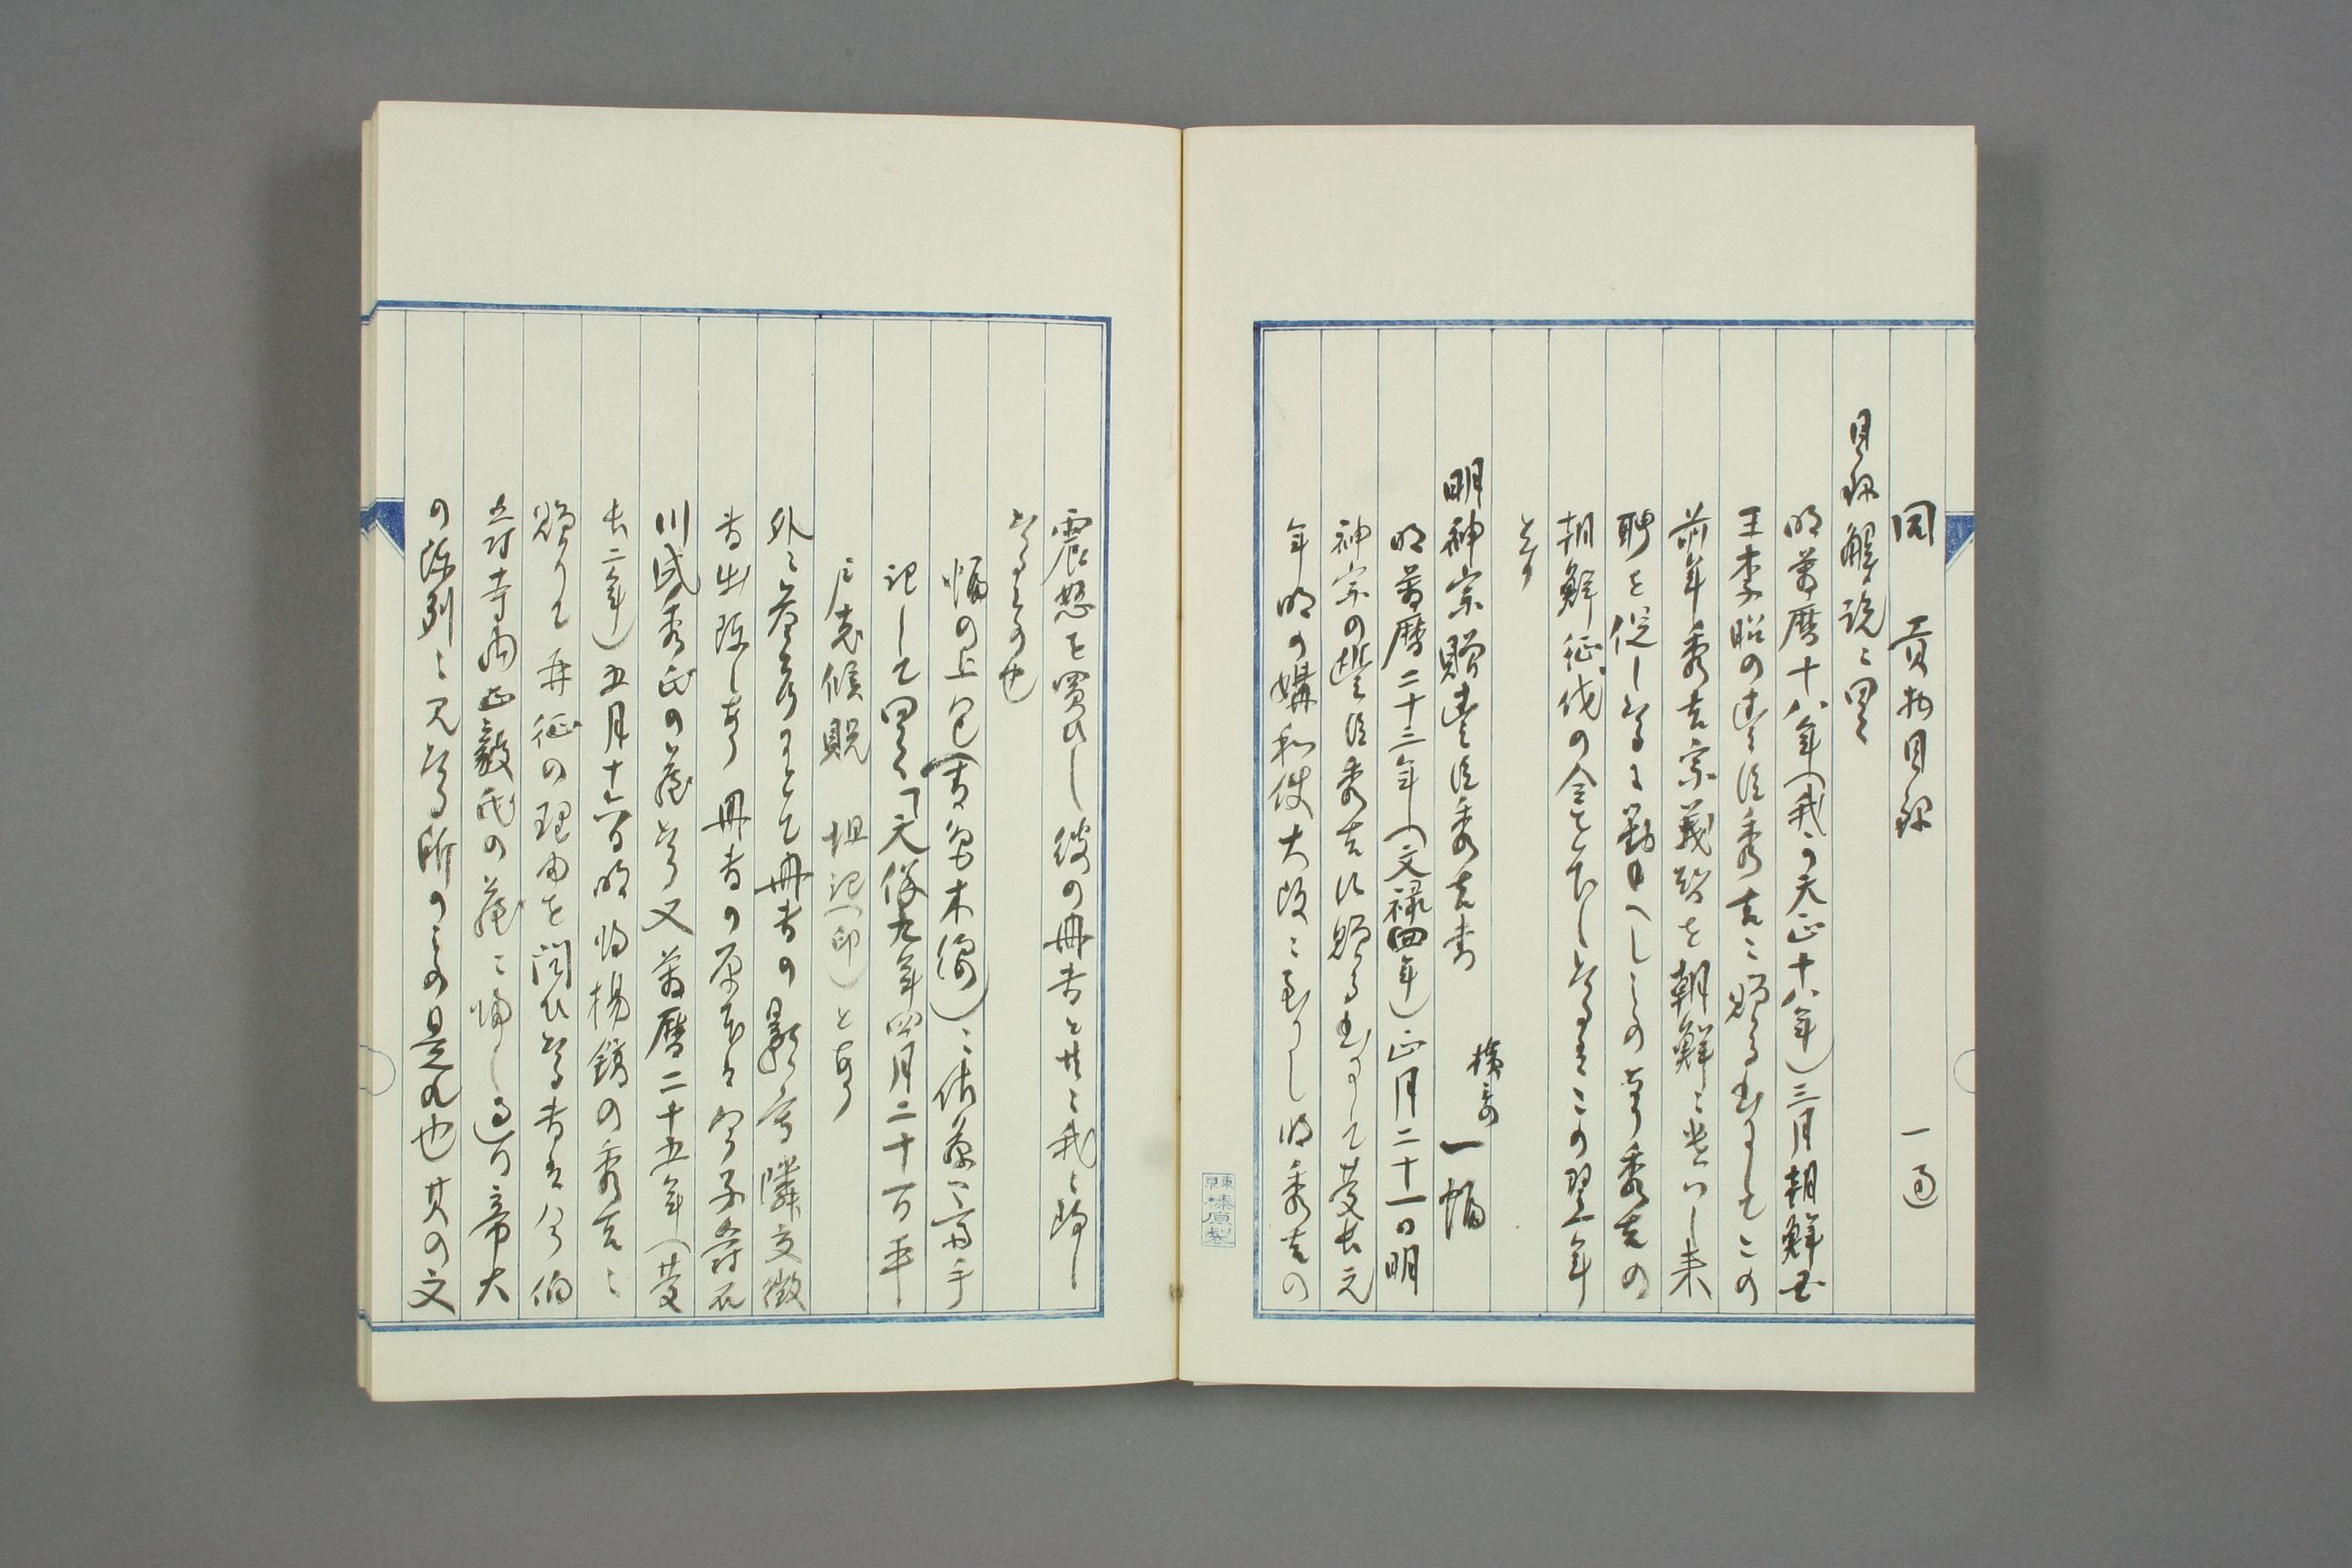 同 貢物目録 一通
目録解説ニ曰く
明萬暦十八年（我の天正十八年）三月朝鮮国
王李昭の豊臣秀吉ニ贈る書にしてこの
前年秀吉宗義智を朝鮮ニ遣はし来
聘を促し
朝鮮征伐の令を下したるはこの翌年
とす
明神宗贈豊臣秀吉書 一幅
明萬暦二十三年（文禄四年）正月二十一日明
神宗の豊臣秀吉に贈る書にして慶長元
年明の媾和使大阪ニ至りし時秀吉の
震怒を買ひし彼の冊書と共ニ我ニ帰し
たるもの也
幅の上包（書留木綿）ニ佐藤一斎手
記して曰く「天保九年四月二十一日平
戸老侯貺 坦記（印）とあり
外ニ参考りとして冊書の影寄隣交徴
書出陳しあり 冊書の原本は今子爵石
川成秀氏の蔵たり又萬暦二十五年（慶
長二年）五月十六日明将楊鎬の秀吉ニ
贈りて再征の理由を問ひたる書は今伯
爵寺内正毅氏の蔵ニ帰し過日帝大
の陳列ニ見たる所のもの是れ也其の文
東京榛原製